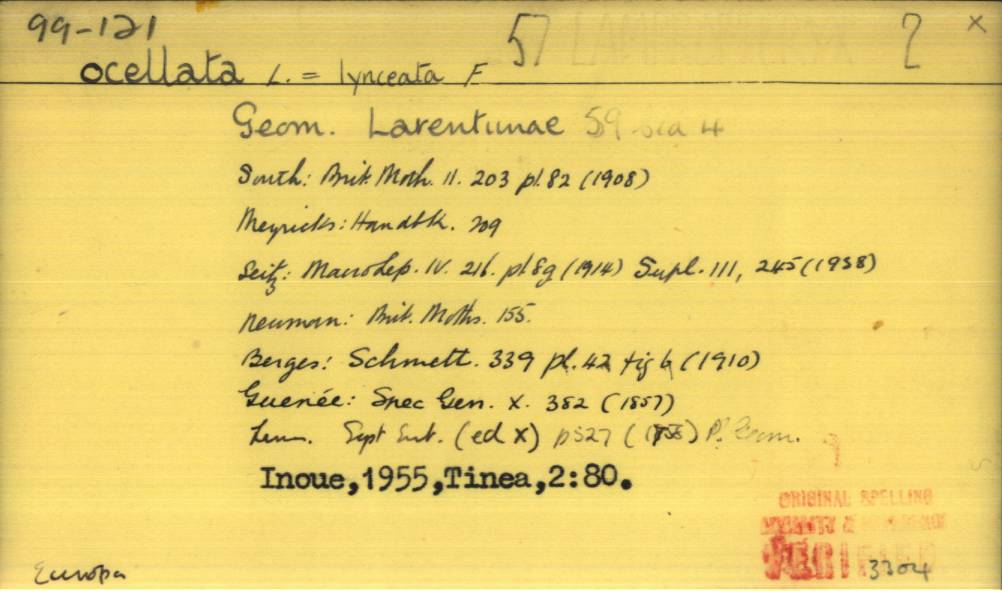 99-121 57 2 x
ocellata L. = lynceata F
Geom. Larentiinae 59 4
South: Brit. Moth. II. 203 pl. 82 (1908)
Meyricks: Handbk. 209
Seitz: Macrolep. IV. 216. pl 8g (1914) Supl. III, 245 (1938)
Newman: Brit. Moths. 155.
Berges: Schmett. 339 pl. 42 fig 6 (1910)
Guenée: Spec Gen. X. 382 (1857)
Linn. Syst Ent. (ed X) p527 (1758) P. Geom.
Inoue,1955,Tinea,2:80.
ORIGINAL SPELLING
VERIFIED
Europa 3304